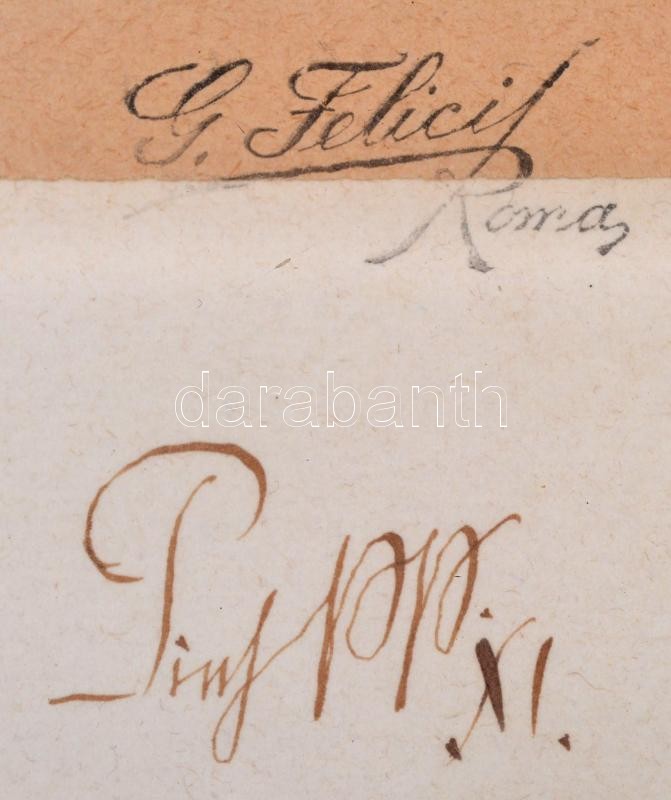 G. Felici
Roma
darabanth
Pius PP. XI.